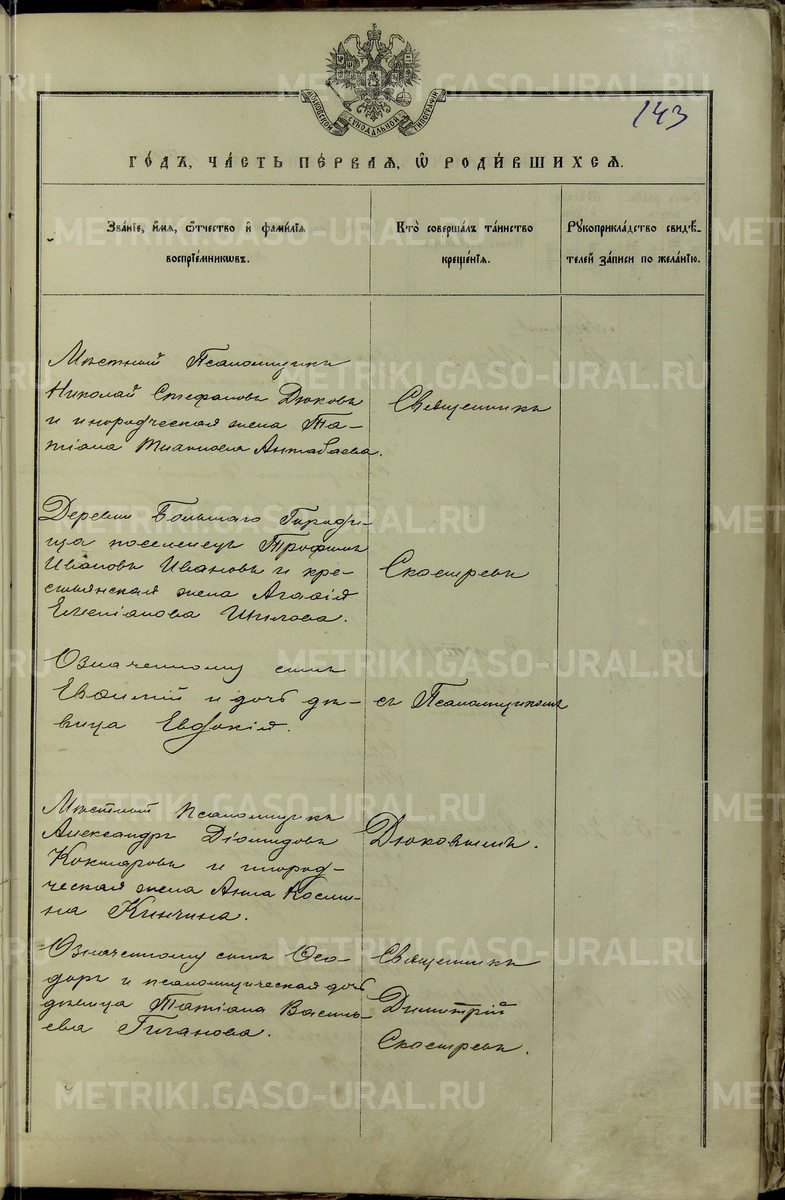 МОСКОВСКОЙ СѴНОДАЛЬНОЙ ТИПОГРАФІИ
143
ГО́ДЪ, ЧА́СТЬ ПЕ́РВАЯ, Ѡ РОДИ́ВШИХСЯ.
Зва́нїе, и́мя, ѻ́тчество и҆ фами́лїя
воспрїе́мникѡвъ.
Кто̀ соверша́лъ та́инство
креще́нїя.
Рꙋкоприкла́дство свидѣ́-
телей за́писи по жела́нїю.
Мѣстный Псаломщикъ
Николай Стефановъ Дюковъ
и инородческая жена Та-
тіана Антабаева.
Священникъ
Деревни Большаго Городи-
ща поселенецъ Трофимъ
Ивановъ Ивановъ и кре-
стьянская жена Агафія
Емеліанова Шилова.
Скосыревъ
Означенному сынъ
Евѳимій и дочь дѣ-
вица Евдокія.
съ Псаломщикомъ
Мѣстный псаломщикъ
Александръ Діомидовъ
Кокшаровъ и инород-
ческая жена Анна Косми-
на Кинчина.
Дюковымъ.
Означенному сынъ Ѳео-
доръ и псаломщическая дочь
дѣвица Татіана Василь-
ева Гиганова.
Священникъ
Димитрій
Скосыревъ.
METRIKI.GASO-URAL.RU